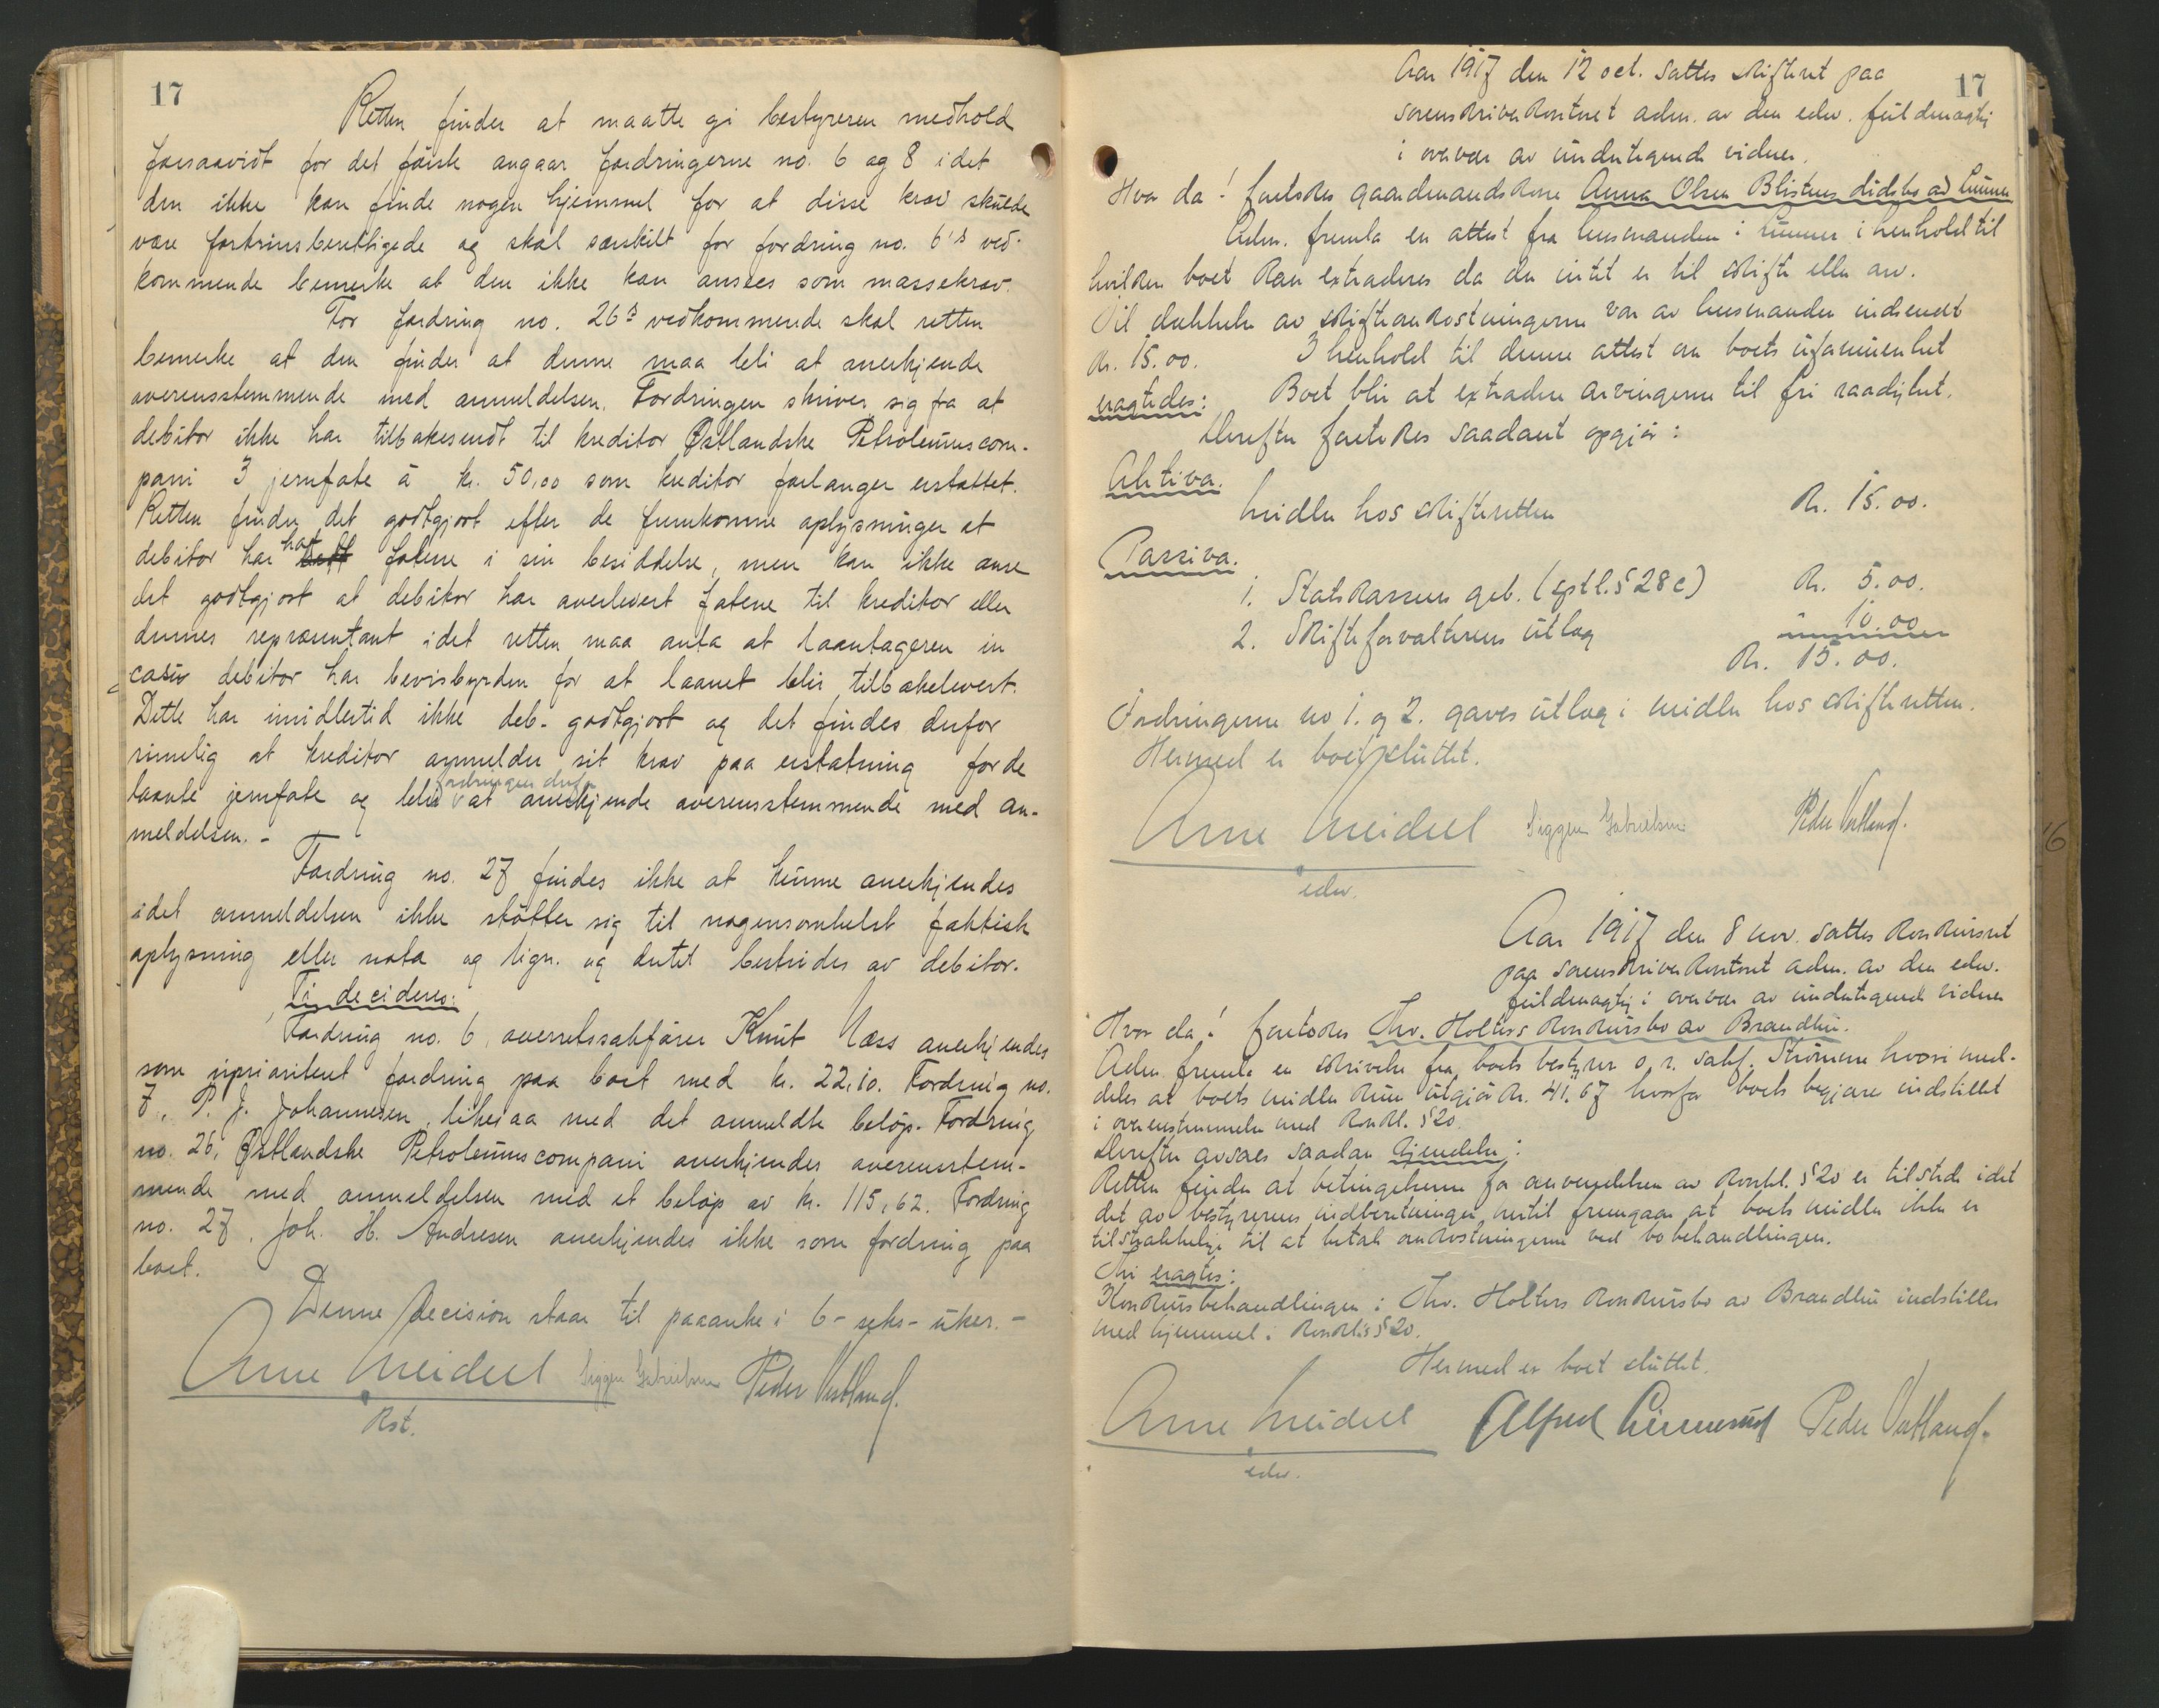 17
Retten finder at maatte gi bestyreren medhold
forsaavidt for det første angaar fordringerne no. 6 og 8 idet
den ikke kan finde nogen hjemmel for at disse krav skulde
være fortrinsberettigede og skal særskilt for fordring no. 6's ved-
kommende bemerke at den ikke kan ansees som massekrav.
For fordring no. 26s vedkommende skal retten
bemerke at den finder at denne maa bli at anerkjende
overensstemmende med anmeldelsen. Fordringen skriver sig fra at
debitor ikke har tilbakesendt til kreditor Østlandske Petroleumscom-
pani 3 jernfate à kr. 50,00 som kreditor forlanger erstattet.
Retten finder det godtgjort efter de fremkomne oplysninger at
debitor har hat fatene i sin besiddelse, men kan ikke anse
det godtgjort at debitor har averlevert fatene til kreditor eller
dennes repræsentant idet retten maa anta at laantageren in
casu debitor har bevisbyrden for at laanet blir tilbakelevert.
Dette har imidlertid ikke deb. godtgjort og det findes derfor
rimelig at kreditor anmelder sit krav paa erstatning for de
fordringen derfor
laante jernfate og blir at anerkjende averensstemmende med an-
meldelsen. -
Fordring no. 27 findes ikke at kunne anerkjendes
idet anmeldelsen ikke støtter sig til nogensomhelst faktisk
oplysning eller nota og lign. og dertil bestrides av debitor.
Ti decideres:
Fordring no. 6, overretssakfører Knut Næss anerkjendes
som uprioritert fordring paa boet med kr. 22,10. Fordring no.
7, P. J. Johannesen, likesaa med det anmeldte beløp. Fordring
no. 26, Østlandske Petroleumscompani anerkjendes averensstem-
mende med anmeldelsen med et beløp av kr. 115,62. Fordring
no. 27, Joh. H. Andresen anerkjendes ikke som fordring paa
boet.
Denne decision staar til paaanke i 6 - seks - uker. -
Arne Meidell Siggen Gabrielsen Peder Vestland.
Kst.
17
Aar 1917 den 12 oct. sattes skifteret paa
sorenskriverkontoret adm. av den edsv. fuldmægtig
i overvær av undertegnede vidner.
Hvor da! foretokes gaardmandskone Anna Olsen dødsbo av Lunner
Adm. fremla en attest fra lensmanden i Lunner i henhold til
hvilken boet kan extraderes da der intet er til skifte eller arv.
Til dækkelse av skifteomkostningerne var av lensmanden indsendt
kr. 15.00. I henhold til denne attest om boets uformuenhet
eragtedes: Boet blir at extradere arvingerne til fri raadighet.
Derefter foretokes saadant opgjør:
Aktiva.
Midler hos skifteretten kr. 15.00.
Passiva.
1. Statskassens geb. (sptl. § 28 c) kr. 5.00.
2. Skifteforvalterens utlæg " 10.00
kr. 15.00.
Fordringerne no 1. og 2. gaves utlæg i midler hos skifteretten.
Hermed er boet sluttet.
Arne Meidell Siggen Gabrielsen Peder Vestland.
edsv.
Aar 1917 den 8 nov. sattes konkursret
paa sorenskriverkontoret adm. av den edsv.
fuldmægtig i overvær av undertegnede vidner
Hvor da! foretokes Thv. Holters konkursbo av Brandbu.
Adm. fremla en skrivelse fra boets bestyrer o.r. sakf. Strømme hvori med-
deles at boets midler kun utgjør kr. 41.67 hvorfor boets begjæres indstillet
i overensstemmelse med konkl. § 20.
Derefter avsaes saadan kjendelse:
Retten finder at betingelserne for anvendelsen av konkl. § 20 er tilstede idet
det av bestyrerens indberetninger hertil fremgaar at boets midler ikke er
tilstrækkelige til at betale omkostningerne ved bobehandlingen.
Thi eragtes:
Konkursbehandlingen i Thv. Holters konkursbo av Brandbu indstilles
med hjemmel i konkl.s § 20.
Hermed er boet sluttet.
Arne Meidell Alfred Peder Vestland.
edsv.
16